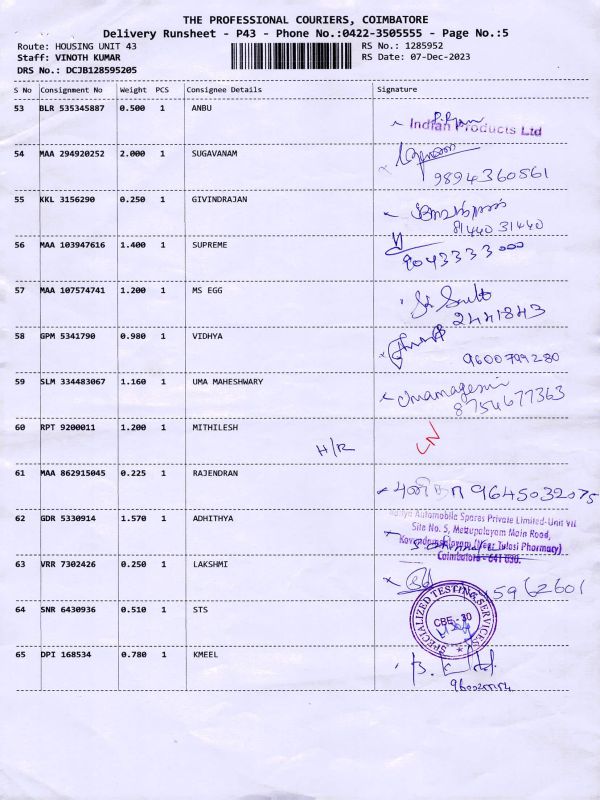 THE PROFESSIONAL COURIERS, COIMBATORE
Delivery Runsheet - P43 - Phone No.:0422-3505555 - Page No.:5
Route: HOUSING UNIT 43 RS No.: 1285952
Staff: VINOTH KUMAR RS Date: 07-Dec-2023
DRS No.: DCJB128595205
S No Consignment No Weight PCS Consignee Details Signature
53 BLR 535345887 0.500 1 ANBU
Indian Products Ltd
54 MAA 294920252 2.000 1 SUGAVANAM
9894360561
55 KKL 3156290 0.250 1 GIVINDRAJAN
8144031440
56 MAA 103947616 1.400 1 SUPREME
9043333000
57 MAA 107574741 1.200 1 MS EGG
2441843
58 GPM 5341790 0.980 1 VIDHYA
9600799280
59 SLM 334483067 1.160 1 UMA MAHESHWARY
8754677363
60 RPT 9200011 1.200 1 MITHILESH
H/R
61 MAA 862915045 0.225 1 RAJENDRAN
9645032075
62 GDR 5330914 1.570 1 ADHITHYA
Automobile Spares Private Limited-Unit VII
Site No. 5, Mettupalayam Main Road,
(Near Tulasi Pharmacy)
Coimbatore - 641 030.
63 VRR 7302426 0.250 1 LAKSHMI
5962601
64 SNR 6430936 0.510 1 STS
SPECIALIZED TESTING SERVICES
CBE - 30
65 DPI 168534 0.780 1 KMEEL